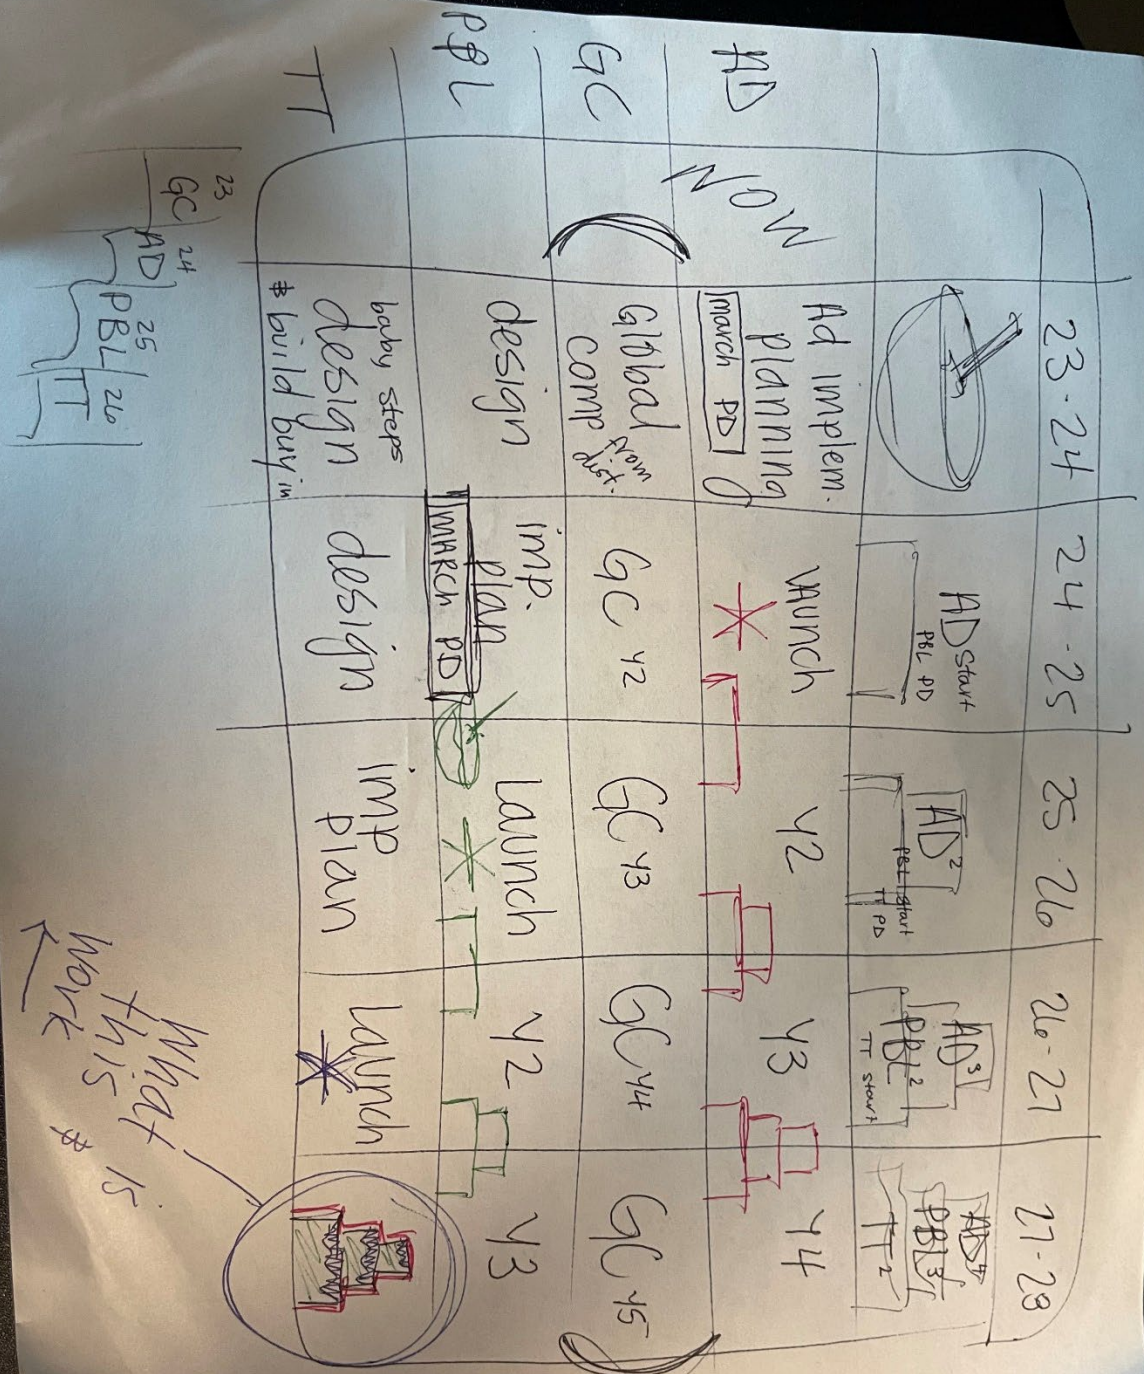 23-24 24-25 25-26 26-27 27-28
AD start
PBL PD
AD²
PBL start
TT PD
AD³
PBL²
TT start
AD⁴
PBL³
TT²
AD
NOW
Ad implem.
planning
March PD
launch
Y2
Y3
Y4
GC
Global
comp
GC Y2
GC Y3
GC Y4
GC Y5
PBL
design
imp.
plan
MARCH PD
Launch
Y2
Y3
TT
baby steps
design
& build buy in
design
imp
plan
Launch
23 24 25 26
GC AD PBL TT
What
this is &
work